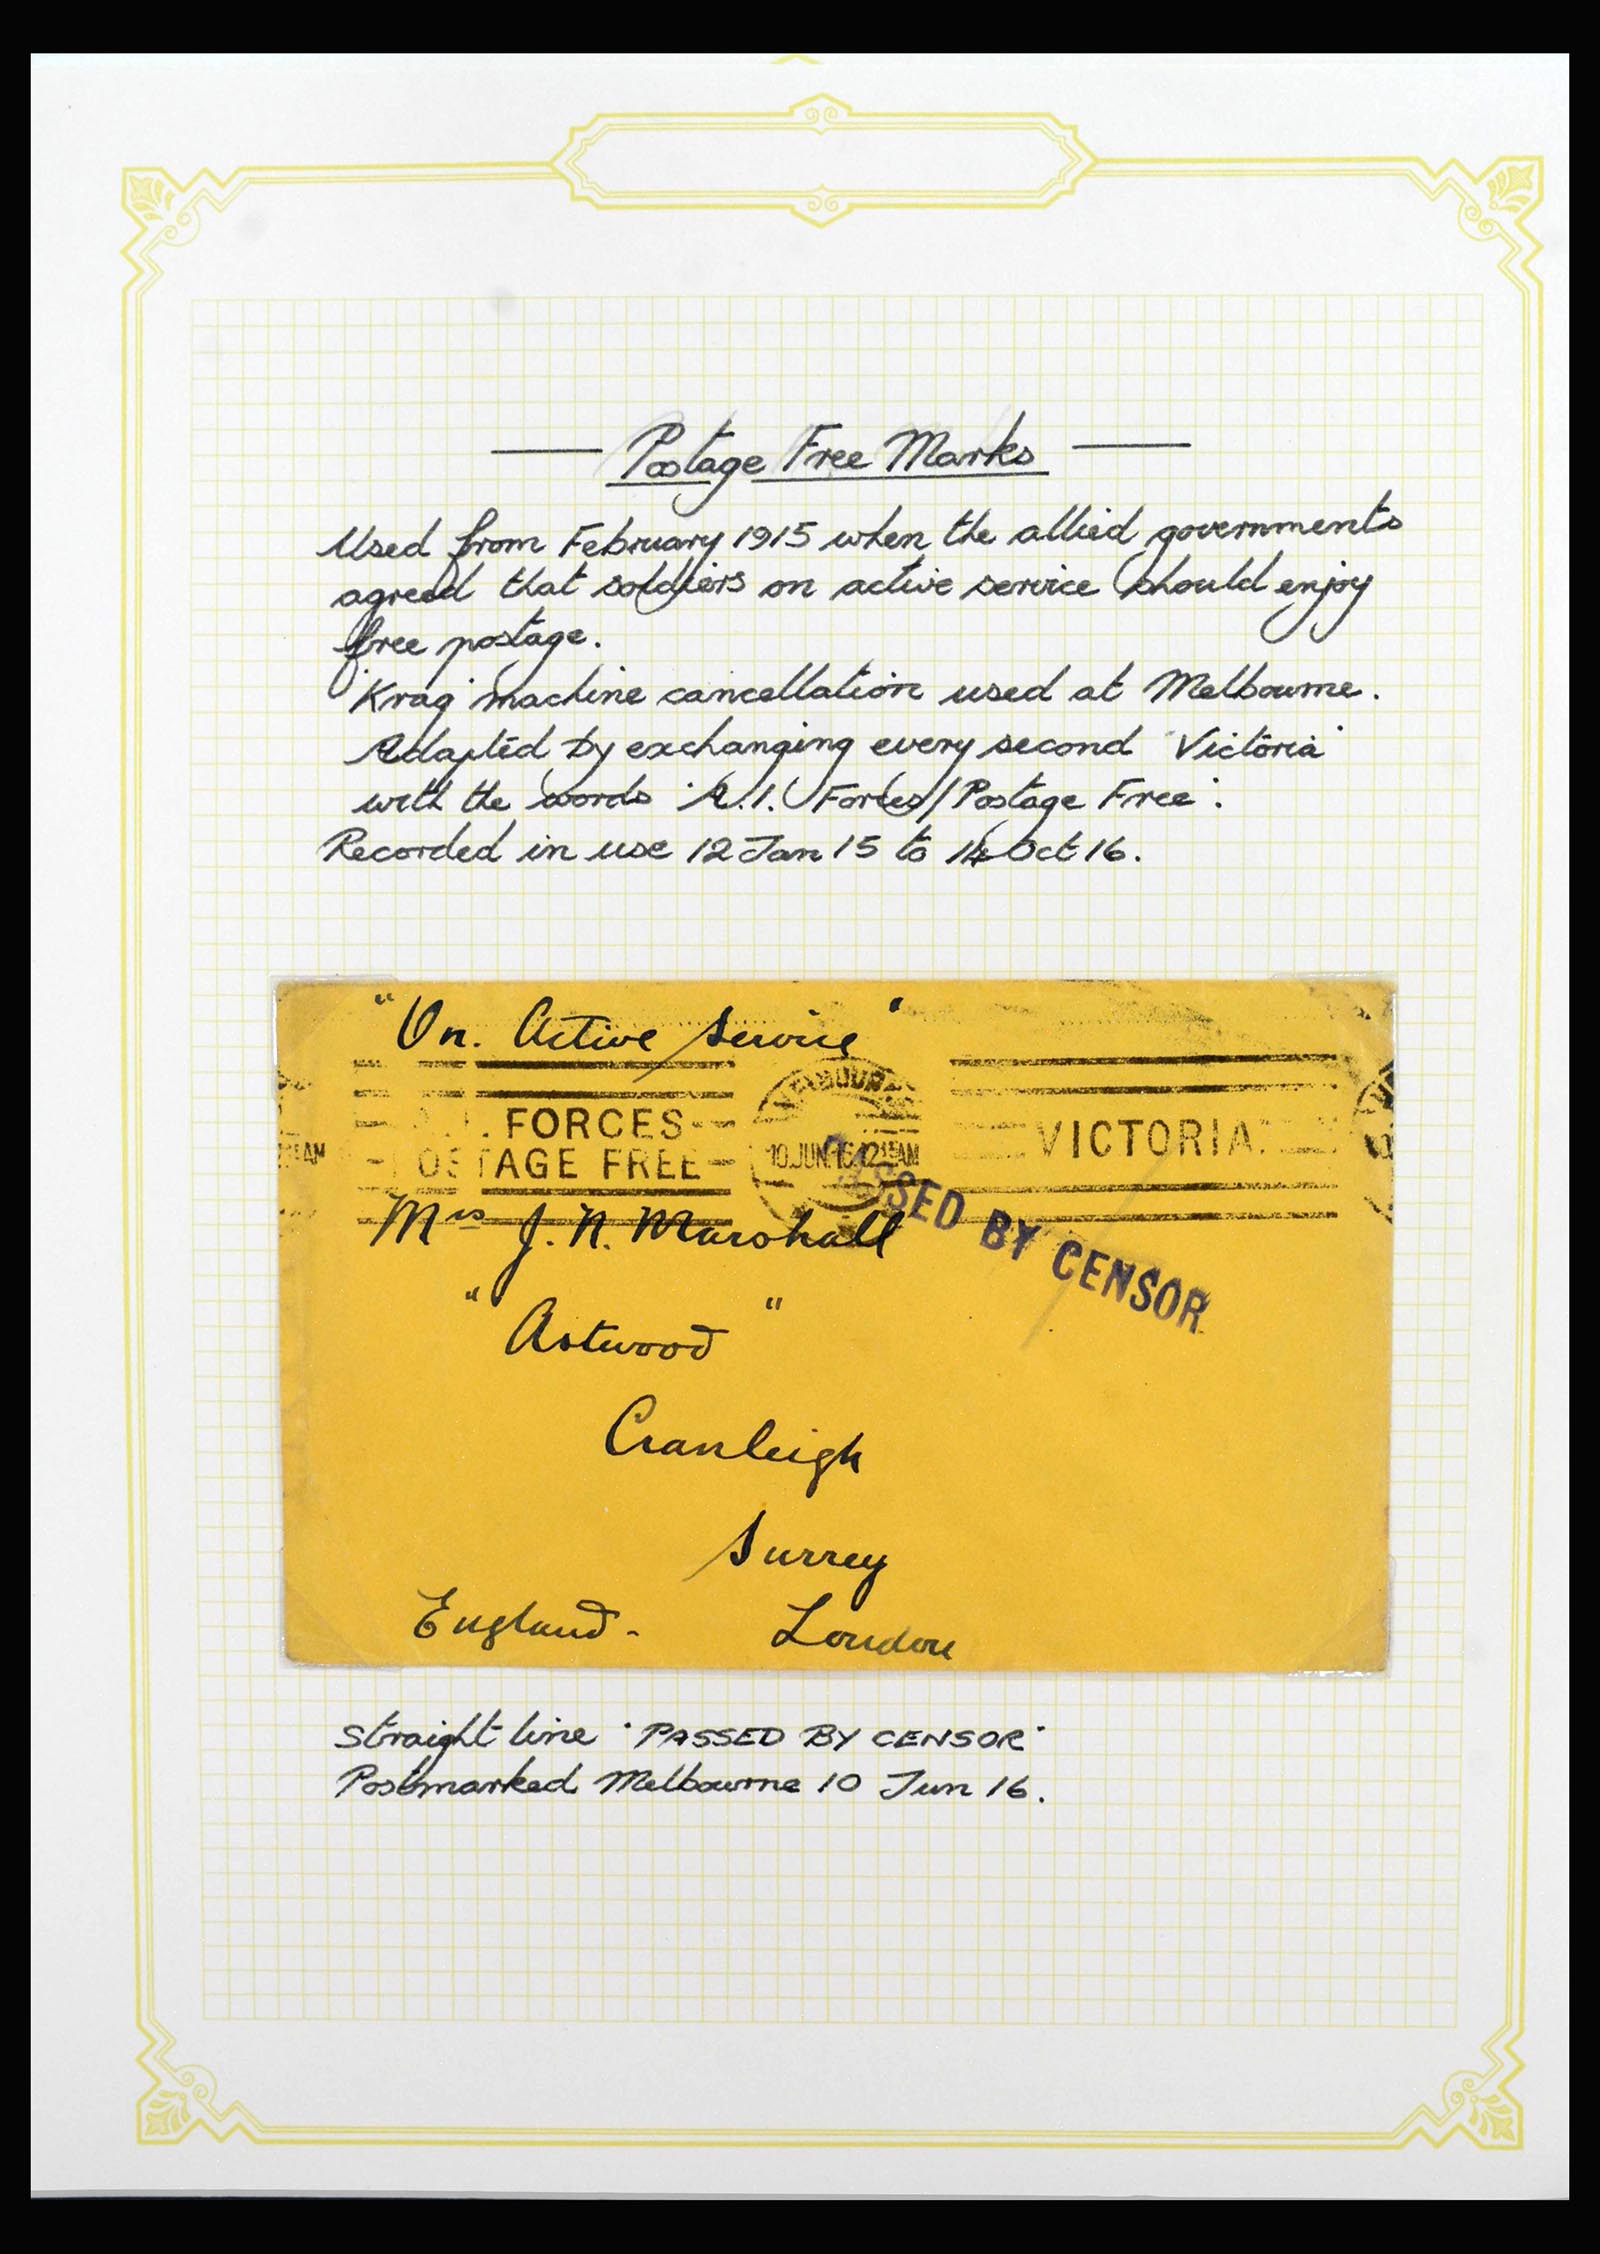 Postage Free Marks
Used from February 1915 when the allied governments
agreed that soldiers on active service should enjoy
free postage.
"Krag" machine cancellation used at Melbourne.
Adapted by exchanging every second "Victoria"
with the words "A.I. Forces/Postage Free".
Recorded in use 12 Jan 15 to 14 Oct 16.
"On. Active Service"
MELBOURNE
FORCES
OSTAGE FREE
10.JUN.16.1215AM
VICTORIA.
AM
PASSED BY CENSOR
Mrs J. N. Marshall
"Astwood"
Cranleigh
Surrey
England. London
Straight line "PASSED BY CENSOR"
Postmarked Melbourne 10 Jun 16.